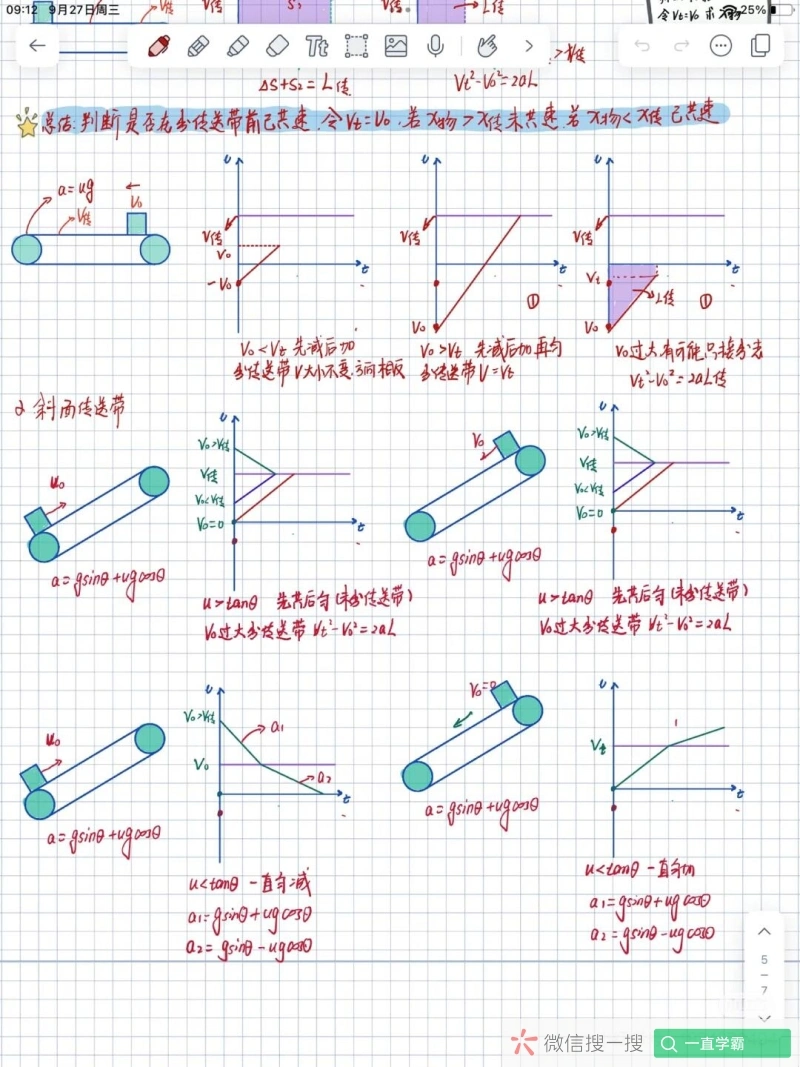 09:12 9月27日周三
25%
令Vt=V0 求X物
V传 S1 V传 L传
ΔS+S2=L传
Vt²-V0²=2aL
总结:判断是否在出传送带前已共速.令Vt=V0.若X物>X传未共速.若X物<X传 已共速
a=ug V0 V传
υ V传 V0 -V0 t
υ V传 V0 t ①
υ V传 Vt V0 L传 t ①
V0<Vt 先减后加
出传送带V大小不变.方向相反
V0>Vt 先减后加再匀
出传送带V=Vt
V0过大有可能只接出去
Vt²-V0²=2aL传
2 斜面传送带
u0
a=gsinθ+ugcosθ
υ V0>V传 V传 V0<V传 V0=0 t
u>tanθ 先共后匀(未出传送带)
V0过大出传送带 Vt²-V0²=2aL
V0
a=gsinθ+ugcosθ
υ V0>V传 V传 V0<V传 V0=0 t
u>tanθ 先共后匀(未出传送带)
V0过大出传送带 Vt²-V0²=2aL
u0
a=gsinθ+ugcosθ
υ V0>V传 a1 V0 a2 t
u<tanθ 一直匀减
a1=gsinθ+ugcosθ
a2=gsinθ-ugcosθ
V0=0
a=gsinθ+ugcosθ
υ Vt t
u<tanθ 一直匀加
a1=gsinθ+ugcosθ
a2=gsinθ-ugcosθ
5
7
微信搜一搜 一直学霸